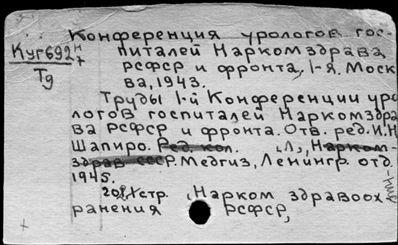 Конференция урологов гос-
Куг692 питалей Наркомздрава
Тд РСФСР и фронта, 1-я. Моск
ва, 1943.
Труды 1-й Конференции уро
логов госпиталей Наркомздра
ва РСФСР и фронта. Отв. ред. И.Н.
Шапиро. Ред. кол. Л., Нарком-
здрав СССР. Медгиз, Ленингр. отд.
1945.
стр. (Нарком здравоох
ранения РСФСР,